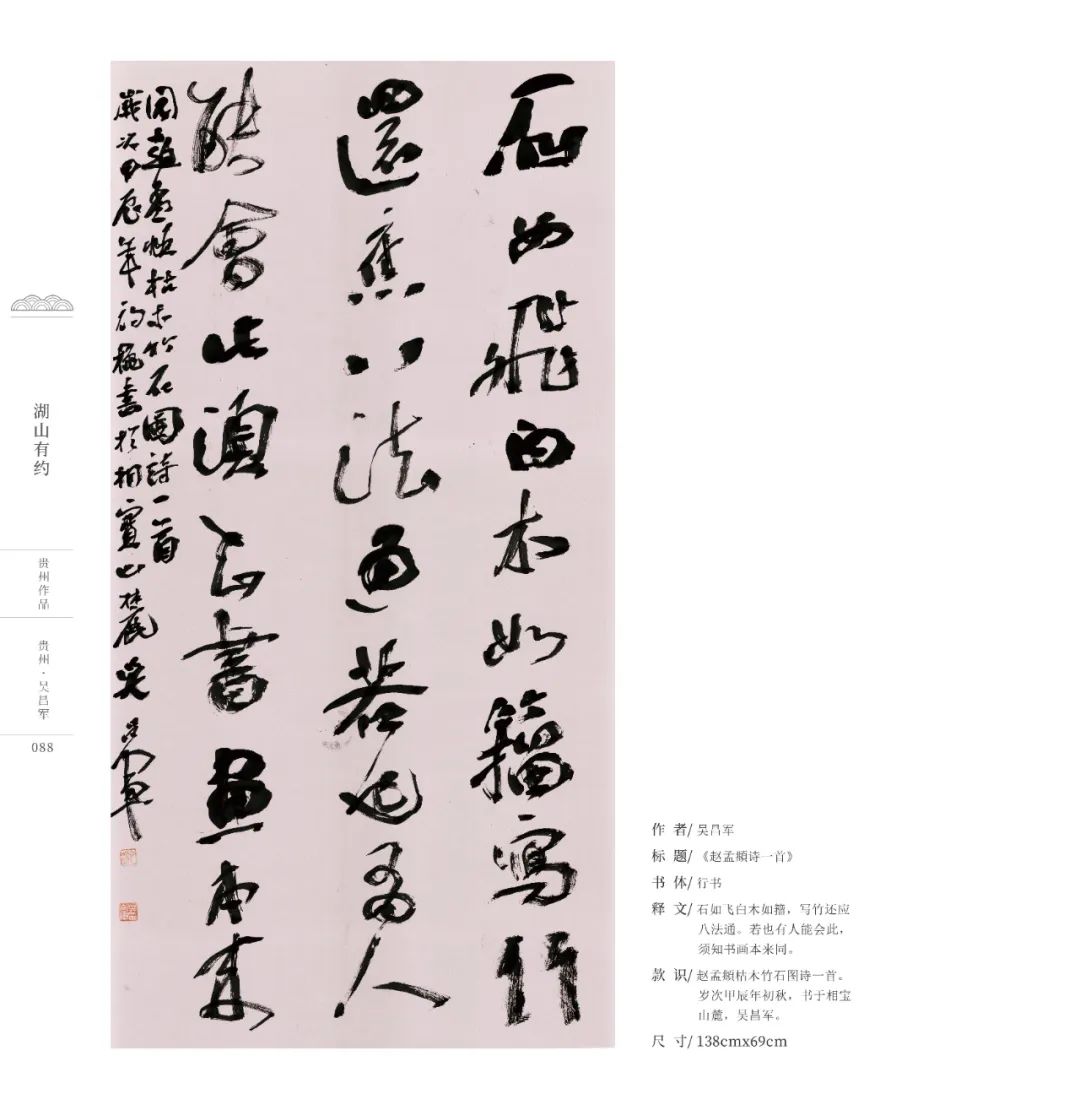 石如飛白木如籀寫竹
還應八法通若也有人
能會此須知書畫本來
同趙孟頫枯木竹石圖詩一首
歲次甲辰年初秋書於相寶山麓吳昌軍
湖山有约
贵州作品
贵州·吴昌军
088
作 者/ 吴昌军
标 题/ 《赵孟頫诗一首》
书 体/ 行书
释 文/ 石如飞白木如籀，写竹还应
八法通。若也有人能会此，
须知书画本来同。
款 识/ 赵孟頫枯木竹石图诗一首。
岁次甲辰年初秋，书于相宝
山麓，吴昌军。
尺 寸/ 138cmx69cm